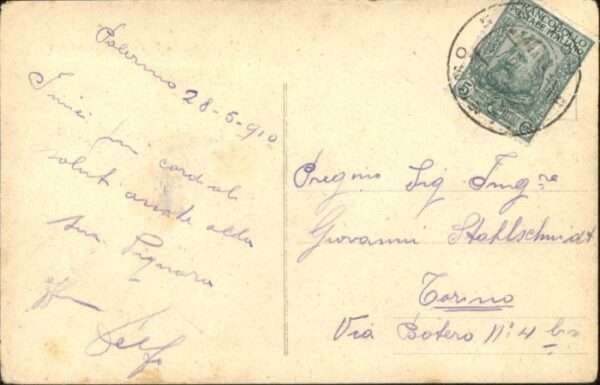 Palermo 28-5-910
I miei più cordiali
saluti anche alla
Sua Signora
Pregmo Sig Ingre
Giovanni Stahlschmidt
Torino
Via Botero N° 4 bis
FRANCOBOLLO
POSTE ITALIANE
5 C